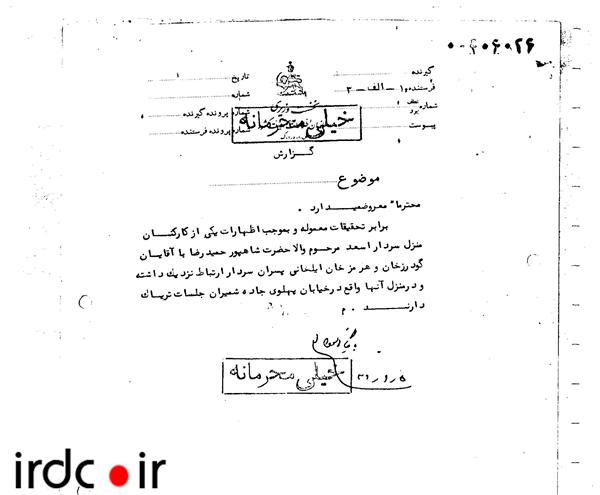 ۰۰۶۰۶۰۲۶
گیرنده
تاریخ
فرستنده ۱۰ - الف - ۳
شماره
نخست وزیری
شماره
شماره پرونده گیرنده
خیلی محرمانه
پیوست
شماره پرونده فرستنده
گزارش
موضوع
محترما" معروضمیدارد .
برابر تحقیقات معموله و بموجب اظهارات یکی از کارکنان
منزل سردار اسعد مرحوم والاحضرت شاهپور حمیدرضا با آقایان
گودرزخان و هرمزخان ایلخانی پسران سردار ارتباط نزدیك داشته
و درمنزل آنها واقع درخیابان پهلوی جاده شمیران جلسات تریاك
دارند . م
خیلی محرمانه
irdc.ir